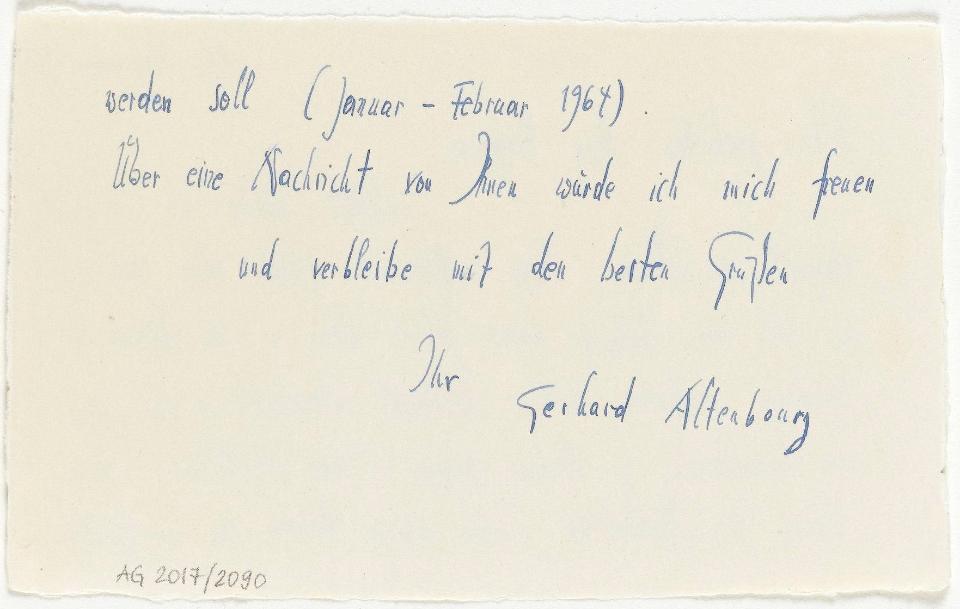 werden soll (Januar – Februar 1964).
Über eine Nachricht von Ihnen würde ich mich freuen
und verbleibe mit den besten Grüßen
Ihr
Gerhard Altenbourg
AG 2017/2090